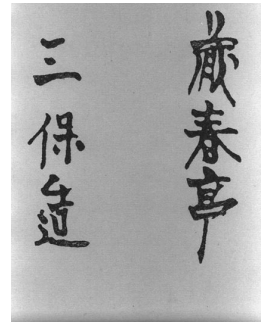 蔵春亭
三保造